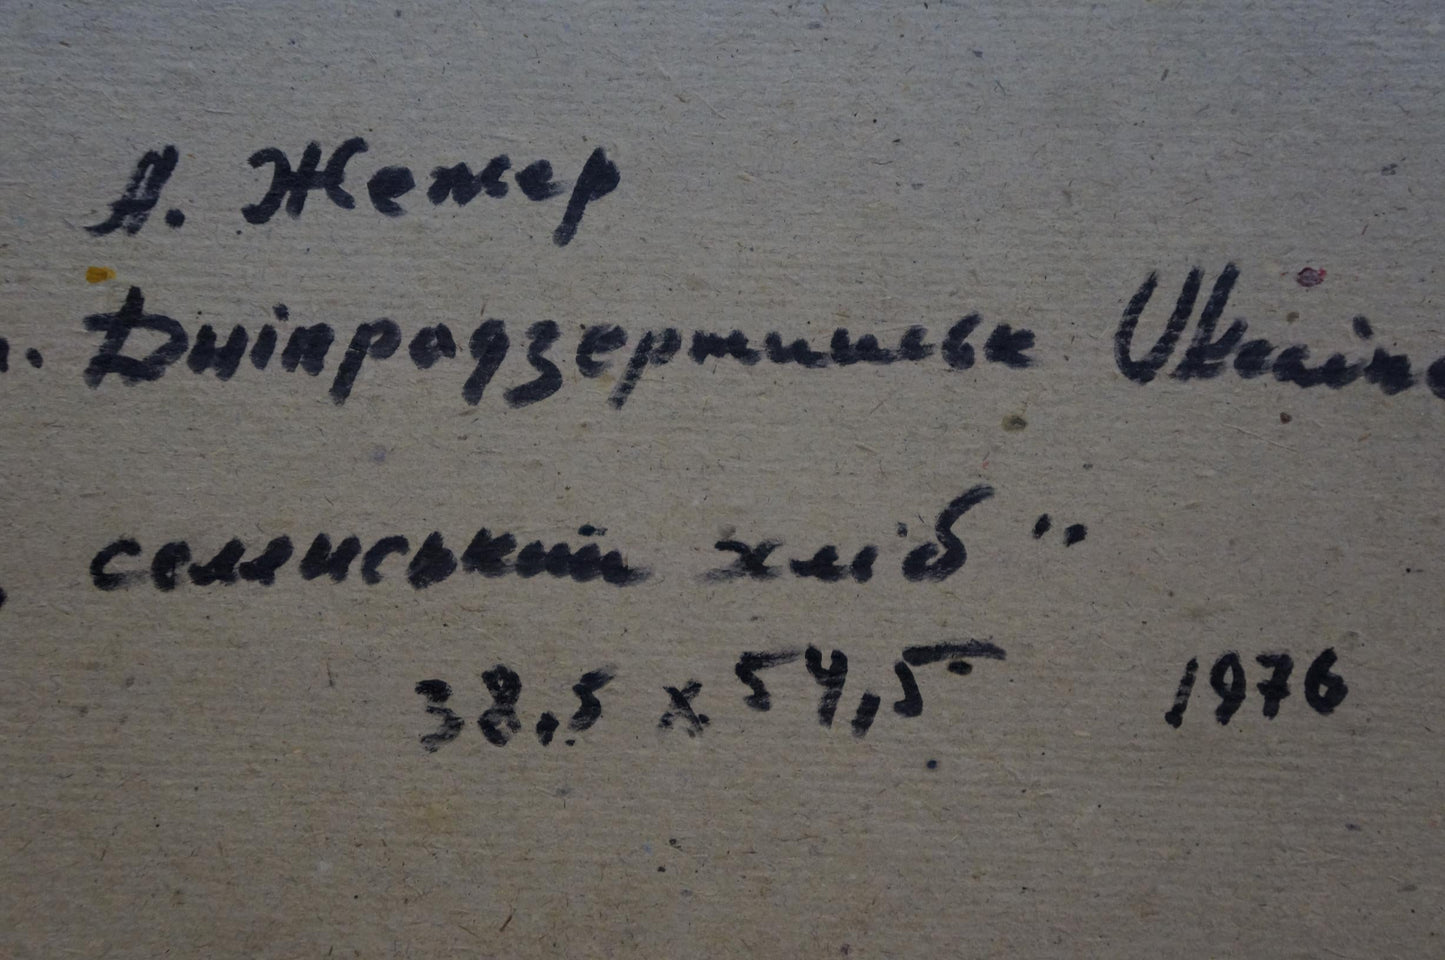 А. Жежер
м. Дніпродзержинськ Ukraine
„ селянський хліб"
38,5 х 54,5 1976